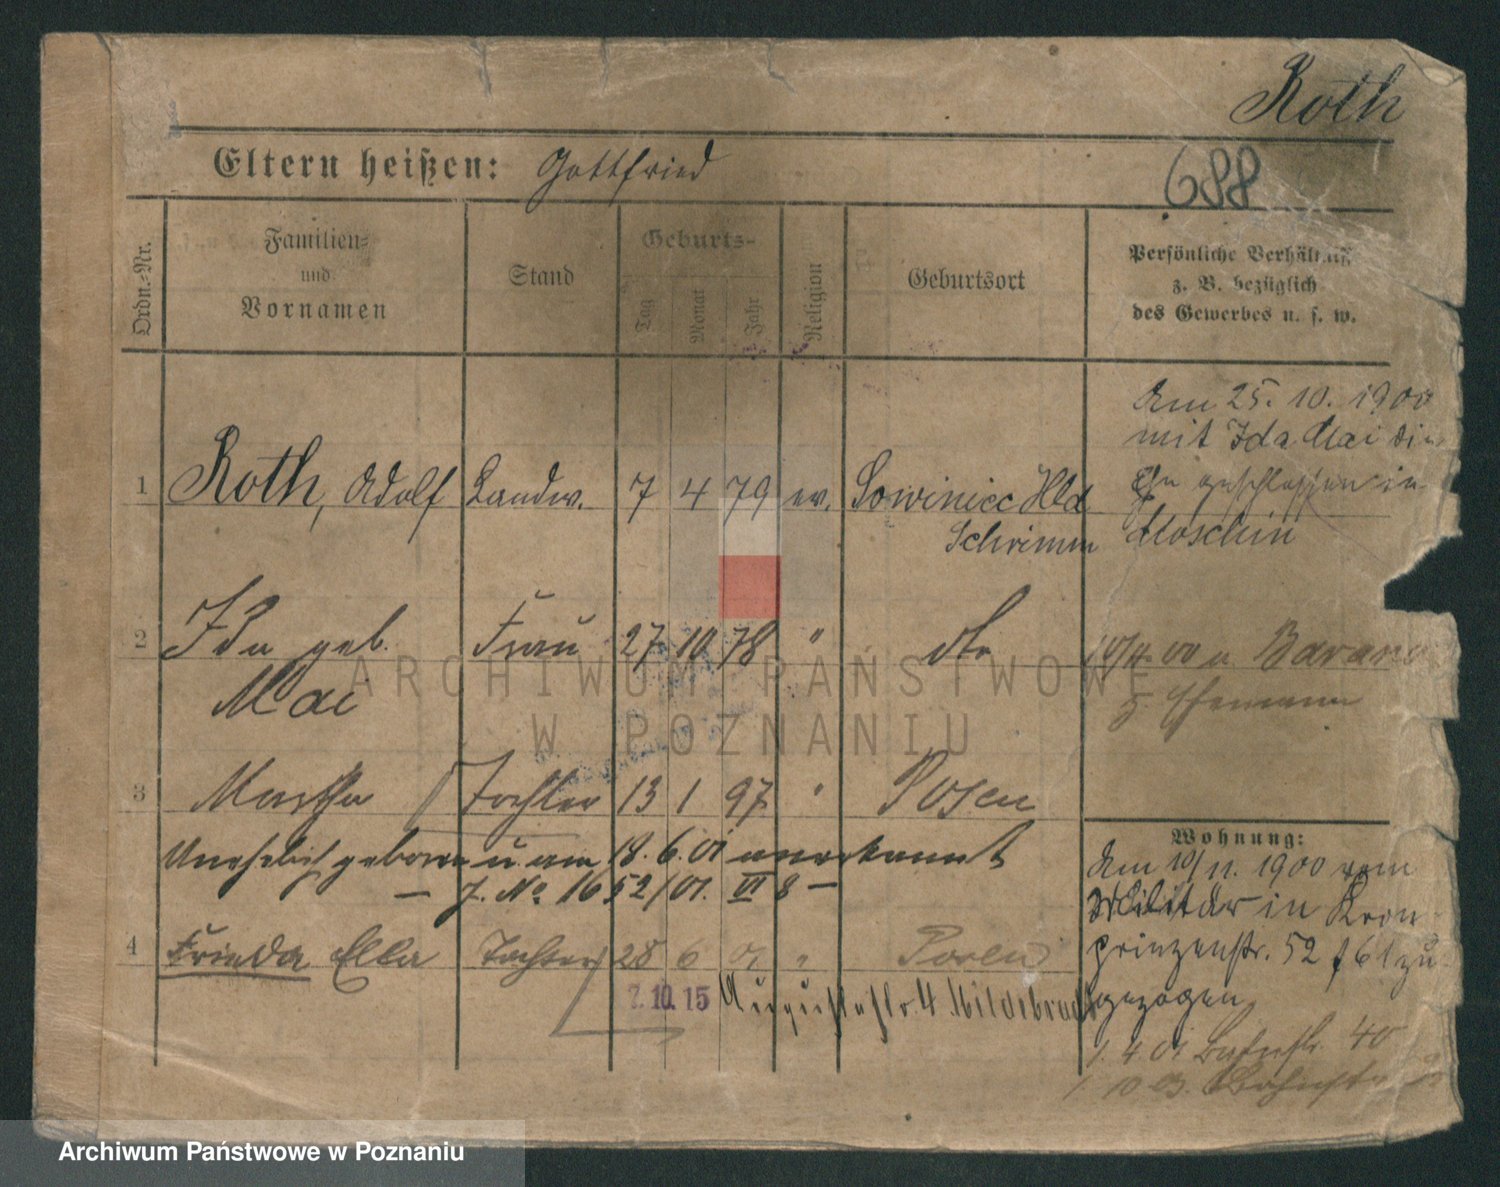 Roth
Eltern heißen: Gottfried
688
Ordn.-Nr.
Familien-
und
Vornamen
Stand
Geburts-
Tag
Monat
Jahr
Religion
Geburtsort
Persönliche Verhältniss
z. B. bezüglich
des Gewerbes u. s. w.
1 Roth, Adolf Landw. 7 4 79 ev. Sowiniec Hld
Schrimm
Am 25. 10. 1900
mit Ida Mai die
Ehe geschlossen in
Moschin
2 Ida geb. Frau 27 10 78 " dto
Mai
10/11 00 a
z. Ehemann
3 Martha Tochter 13 1 97 " Posen
Unehelich geboren u. am 18. 6. 01 anerkannt
– J. No 1652/01. VI 8 –
4 Frieda Ella Tochter 28 6 01 " Posen
7.10.15 Augustastr. 4
Wohnung:
Am 10/11. 1900 vom
Militär in Kron-
prinzenstr. 52 zu-
gezogen
1. 4 01 40
1. 10 03
ARCHIWUM PAŃSTWOWE
W POZNANIU
Archiwum Państwowe w Poznaniu